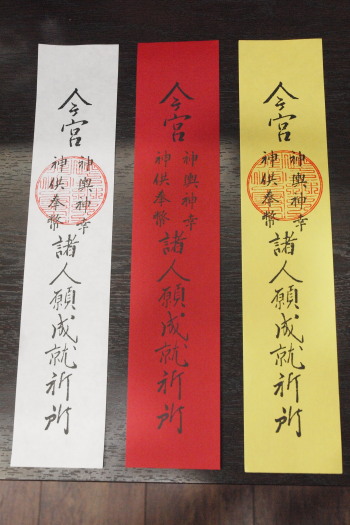 今宮
神輿神幸
神供奉幣
諸人願成就祈所
今宮
神輿神幸
神供奉幣
諸人願成就祈所
今宮
神輿神幸
神供奉幣
諸人願成就祈所